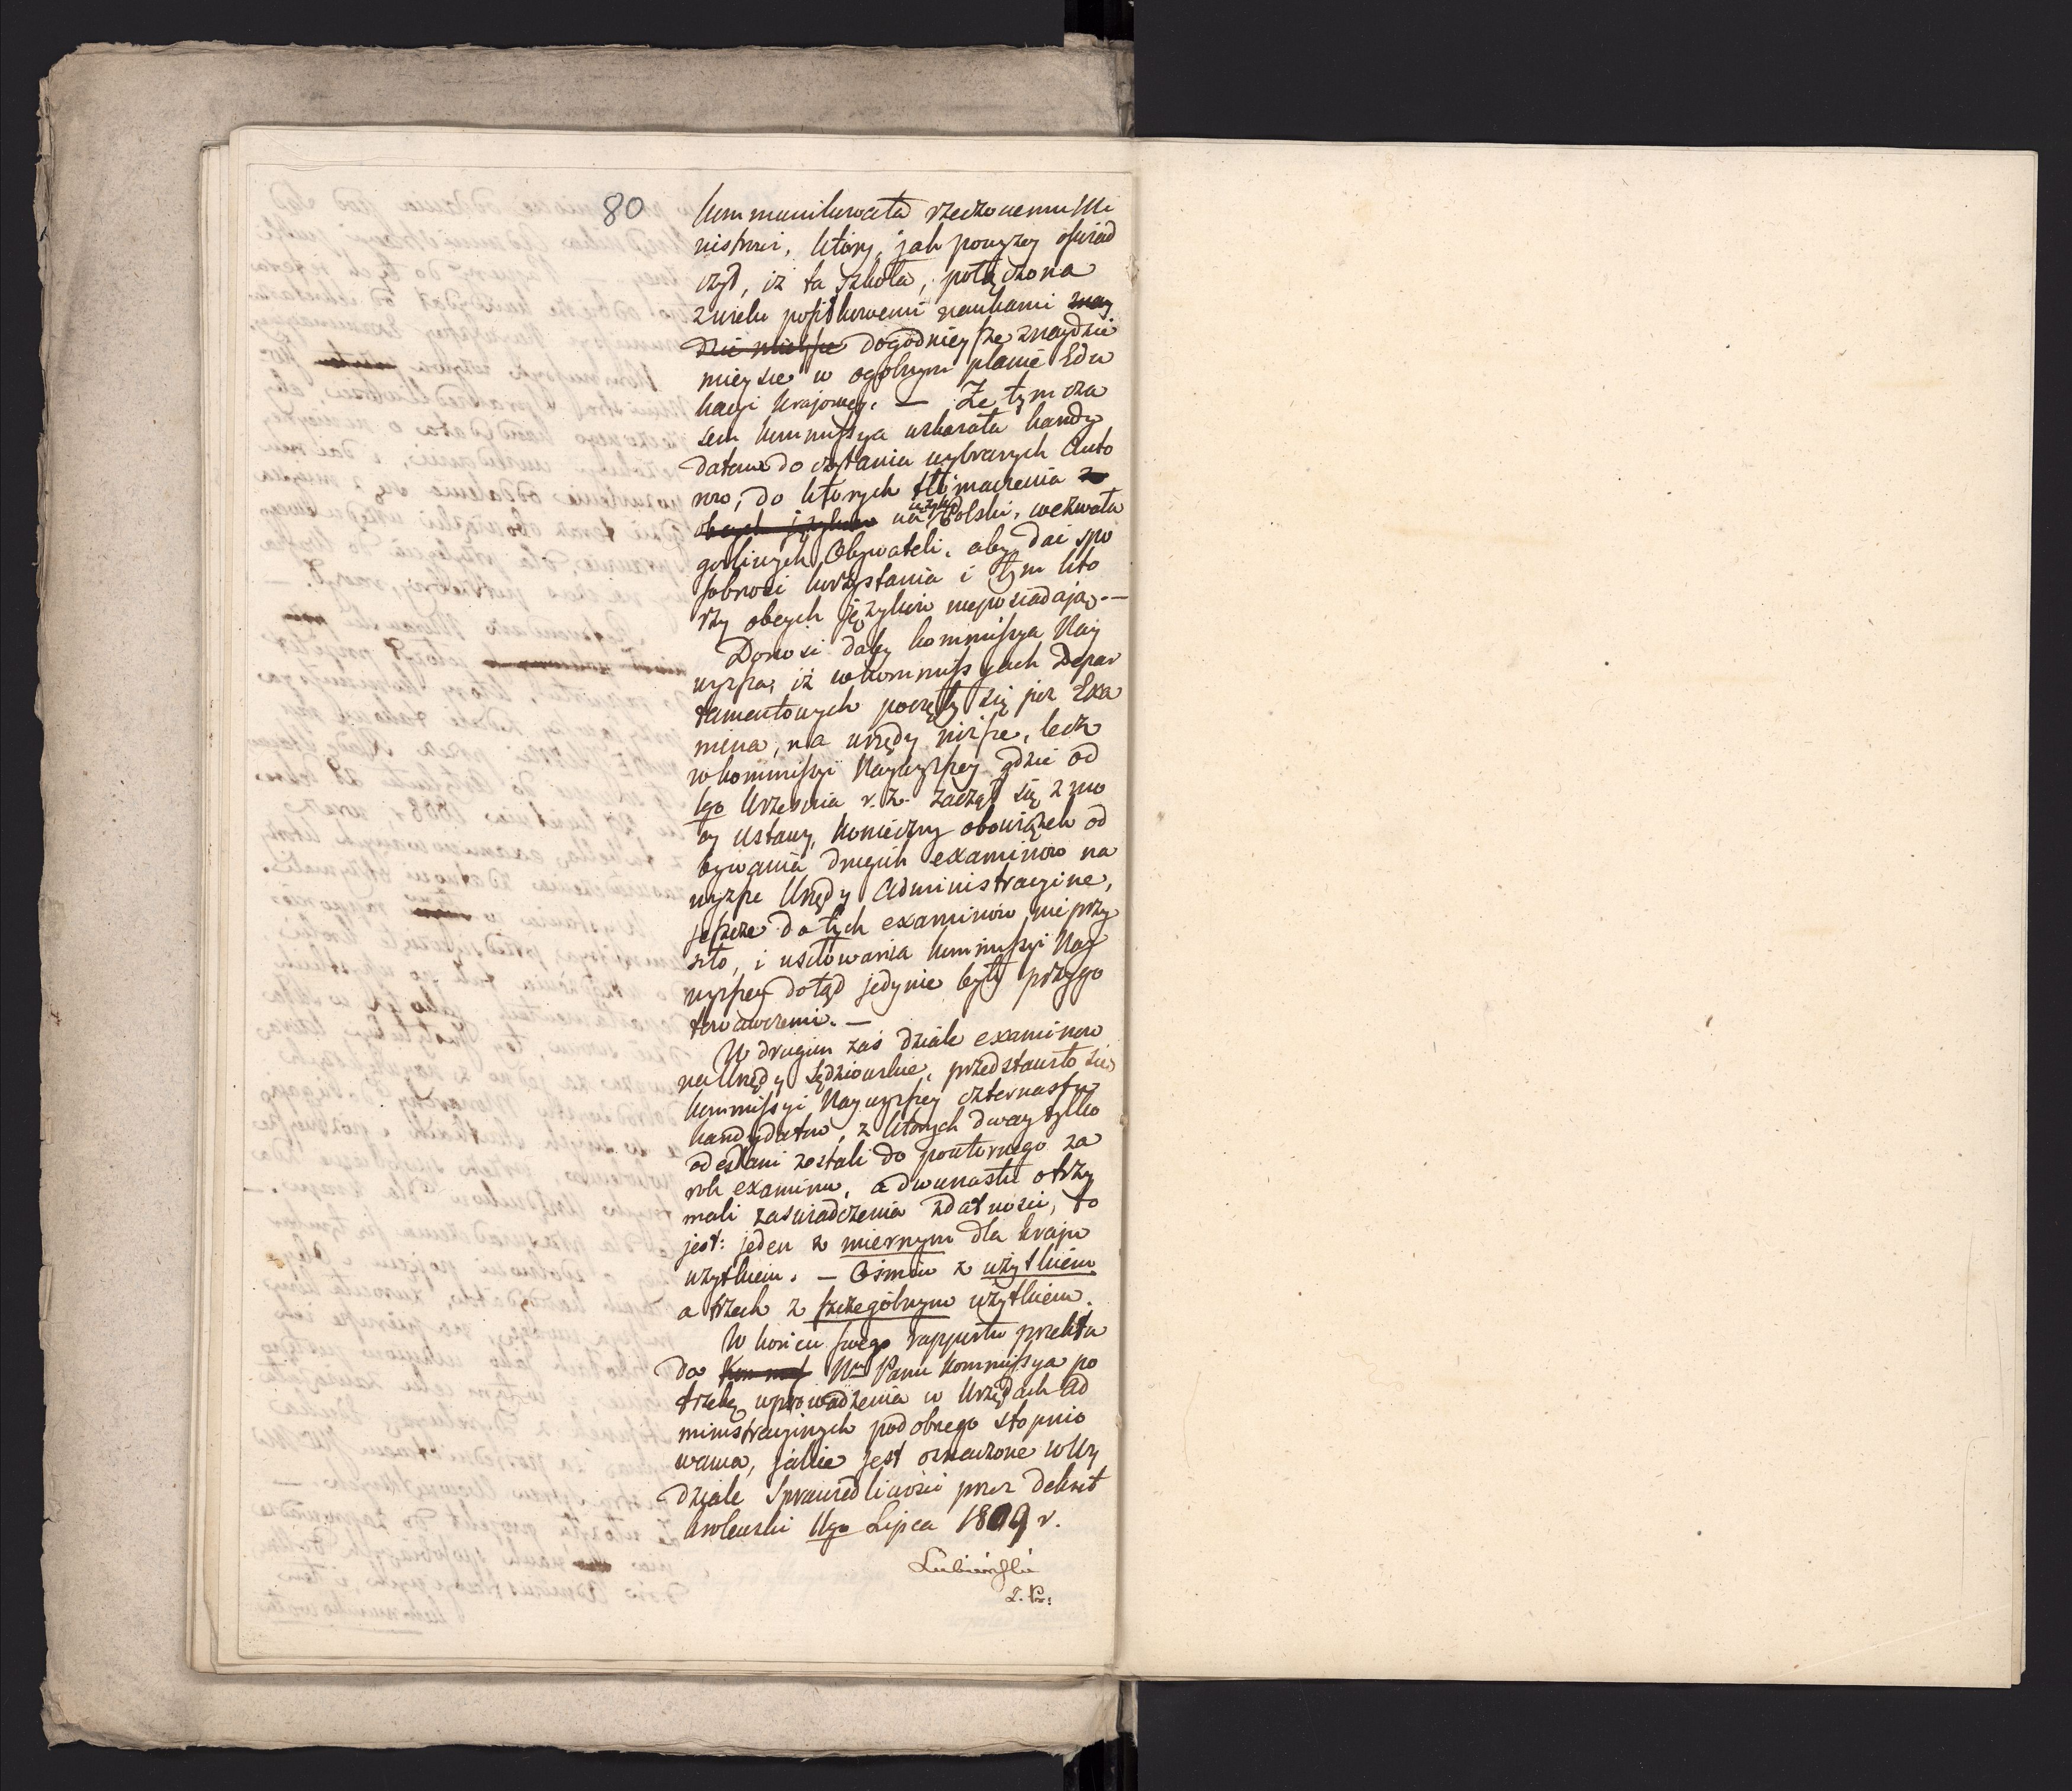 80
kommunikowała rzeczonemu Mi
nistrowi, który, jak powyzey oświad
czył, iż ta Szkoła, połączona
z wielu posiłkowemi naukami znay
dzie mieysce dogodnieysze znaydzie
mieysce w ogólnym planie Edu
kacyi krajowey. — Że tym cza
sem kommissya wskazała kandy
datom do czytania wybranych Auto
rów, do których tłómaczenia z
obcych języków na język Polski, wezwała
gorliwych Obywateli, aby dać spo
sobność korzystania i tym kto
rzy obcych języków nieposiadają. —
Donosi daley kommissya Nay
wyzsza, iż w kommissyach Depar
tamentowych poczęły się już Exa
mina, na urzędy niższe, lecz
w kommissyi Naywyzszey gdzie od
1go Września r. z. zaczął się z mo
cy ustawy, konieczny obowiązek od
bywania drugich examinów na
wyzsze Urzędy Administracyine,
jeszcze do tych examinów nie przy
szło, i usiłowania kommissyi Nay
wyzszey dotąd jedynie były przygo
towawczemi. —
W drugim zaś dziale examinow
na Urzędy Sędziowskie, przedstawiło się
kommissyi Naywyzszey czternastu
kandydatów, z których dwaj tylko
odesłani zostali do powtórnego za
rok examinu, a dwunastu otrzy
mali zaświadczenia zdatności, to
jest: jeden z miernym dla kraju
użytkiem. — Ośmiu z użytkiem
a trzech z szczególnym użytkiem.
W końcu swego rapportu przekła
da WKM Panu kommissya po
trzebę wprowadzenia w Urzędach Ad
ministracyinych podobnego stopnio
wania, jakie jest oznaczone w Wy
dziale Sprawiedliwości przez dekret
królewski Lipca 1809 r.
Lubieński